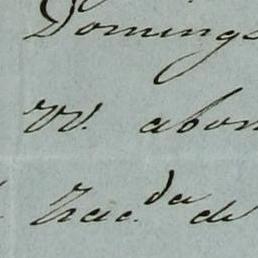 Domingo
VV. abon
Trac.da de